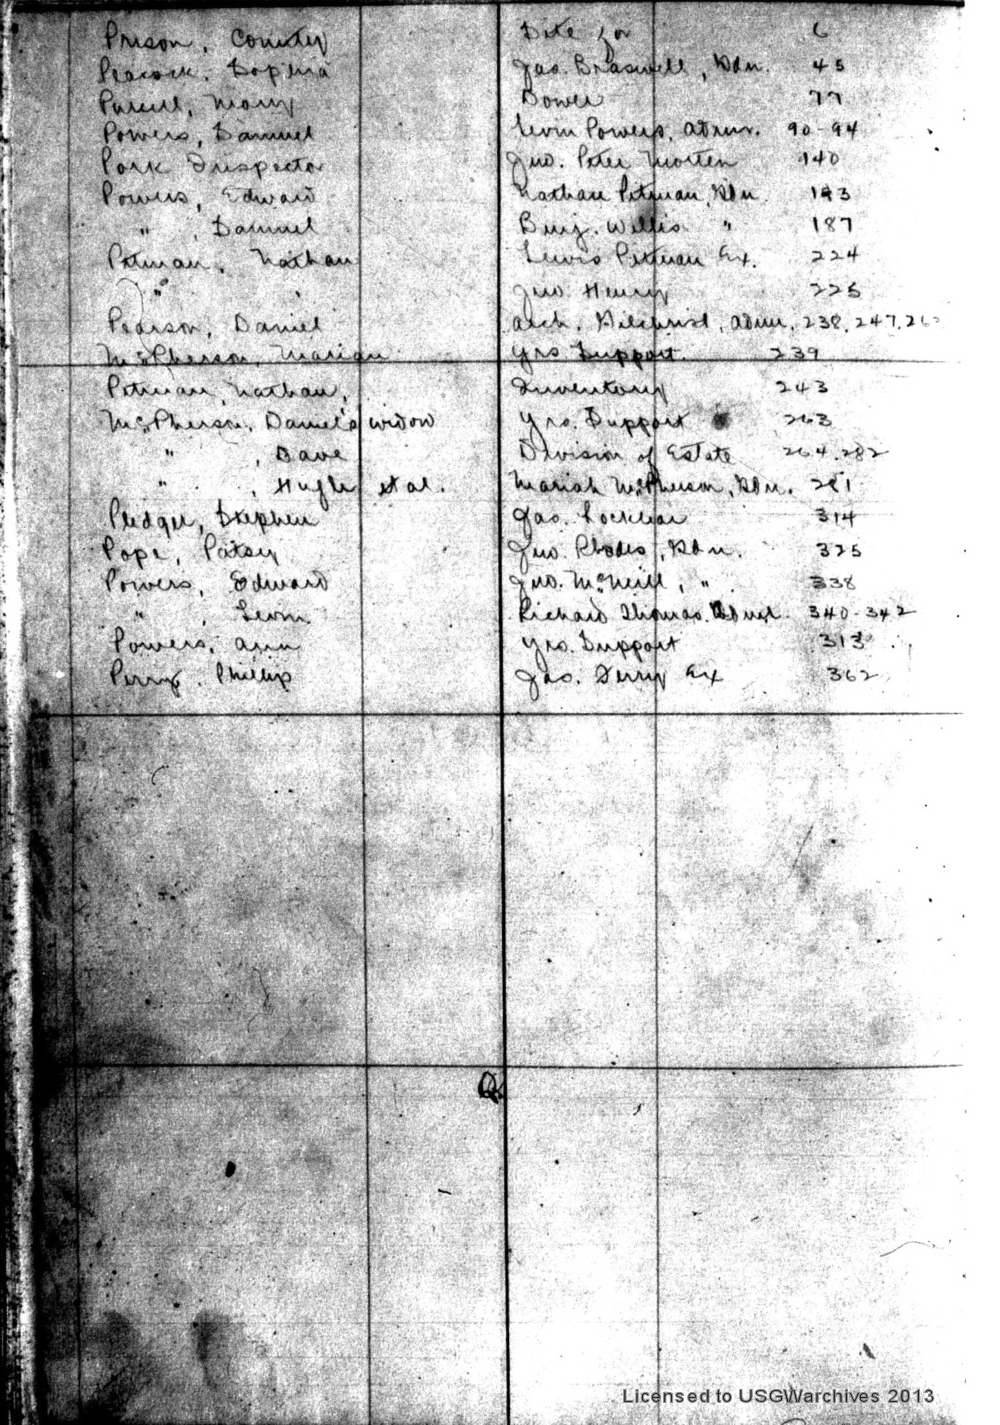 Prison, County Site for 6
Peacock, Sophia Jas. Braswell, Gdn. 45
Purcell, Mary Dower 77
Powers, Samuel Levin Powers, admr. 90-94
Pork Inspector Jno. Peter Morten 140
Powers, Edward Nathan Pitman, Gdn. 193
" , Samuel Benj. Willis " 187
Pitman, Nathan Lewis Pittman Ex. 224
" Jno. Henry 225
Pearson, Daniel Arch. Gilchrist, admr. 238, 247,
McPherson, Marian Yrs Support. 239
Pitman, Nathan, Inventory 243
McPherson, Daniel's widow Yrs. Support 263
" , Dave Division of Estate 264.282
" , Hugh et al. Mariah McPherson, Gdn. 281
Pledger, Stephen Jas. Locklear 314
Pope, Patsey Jno. Rhodes, Gdn. 325
Powers, Edward Jno. McNeill, " 338
" , Levin Richard Thomas. Admr. 340-342
Powers, Ann Yrs. Support 313
Perry, Phillip Jas. Terry Ex 362
Q
Licensed to USGWarchives 2013